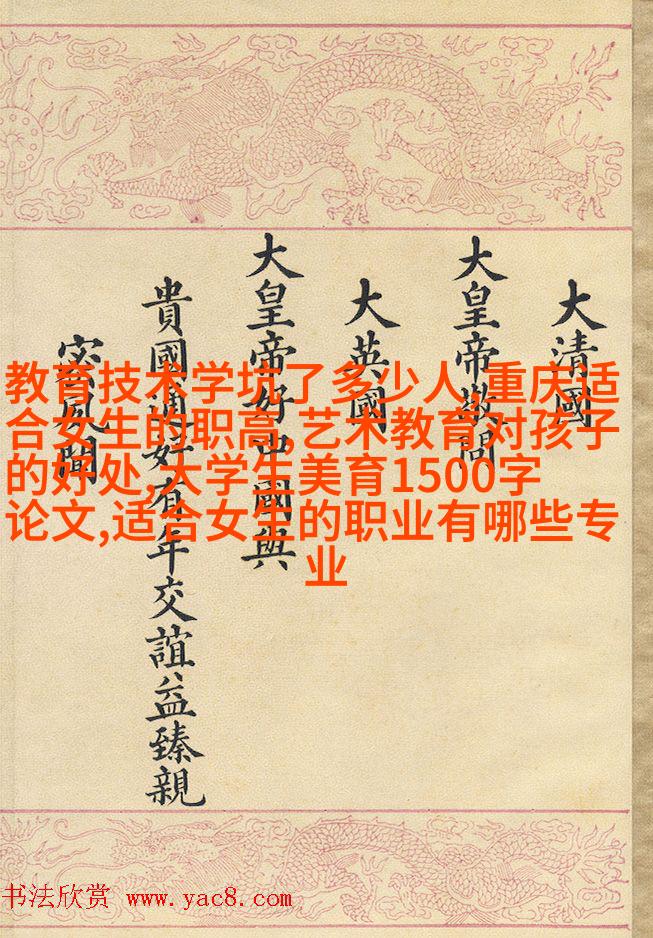 大清國
大皇帝敬問
大英國
大皇帝好中國與
貴國通好有年交誼益臻親
密夙聞
教育技术学坑了多少人,重庆适
合女生的职高,艺术教育对孩子
的好处,大学生美育1500字
论文,适合女生的职业有哪些专
业
书法欣赏 www.yac8.com